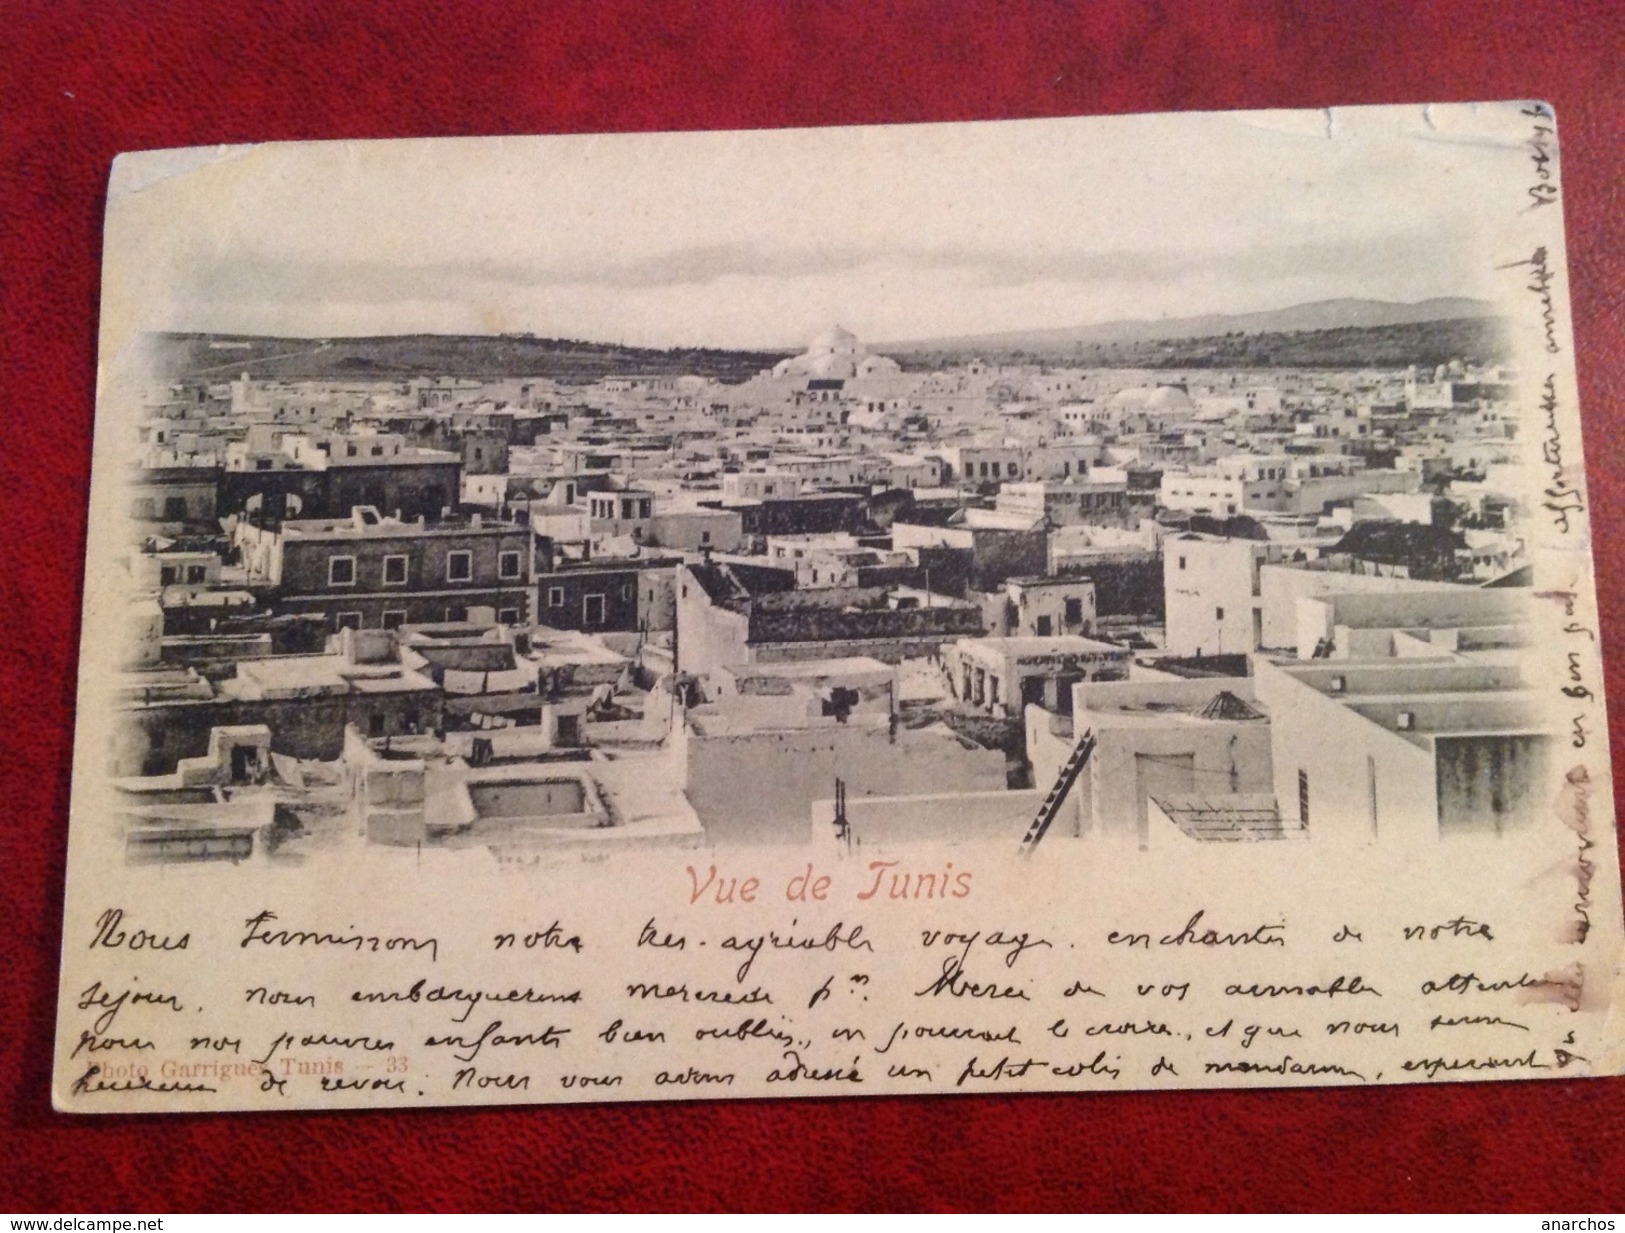 Vue de Tunis
Nous terminons notre très-agréable voyage. enchantés de notre
séjour, nous embarquerons mercredi pn. Merci de vos aimables attentions
pour nos pauvres enfants bien oubliés, on pourrait le croire, et que nous serons
heureux de revoir. Nous vous avons adressé un petit colis de mandarines, espérant
qu'elles arriveront en bon état. affectueuses amitiés
Photo Garrigues Tunis - 33
www.delcampe.net
anarchos